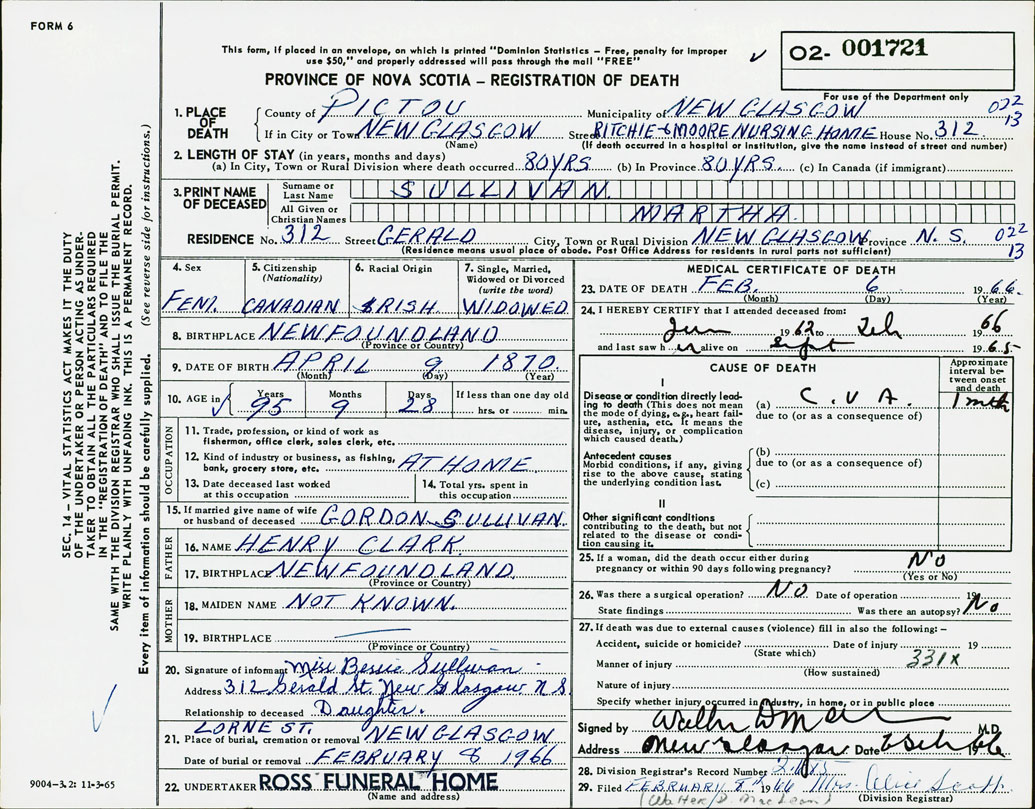 FORM 6
This form, if placed in an envelope, on which is printed "Dominion Statistics – Free, penalty for improper
use $50," and properly addressed will pass through the mail "FREE"
✓
O2- 001721
PROVINCE OF NOVA SCOTIA – REGISTRATION OF DEATH
For use of the Department only
1. PLACE OF DEATH
County of PICTOU Municipality of NEW GLASGOW 022
13
If in City or Town NEW GLASGOW Street RITCHIE & MOORE NURSING HOME House No. 312
(Name) (If death occurred in a hospital or institution, give the name instead of street and number)
2. LENGTH OF STAY (in years, months and days)
(a) In City, Town or Rural Division where death occurred 80 YRS (b) In Province 80 YRS. (c) In Canada (if immigrant)
3. PRINT NAME OF DECEASED
Surname or Last Name SULLIVAN
All Given or Christian Names MARTHA
RESIDENCE No. 312 Street GERALD City, Town or Rural Division NEW GLASGOW Province N. S. 022
13
(Residence means usual place of abode. Post Office Address for residents in rural parts not sufficient)
4. Sex FEM.
5. Citizenship (Nationality) CANADIAN
6. Racial Origin IRISH
7. Single, Married, Widowed or Divorced (write the word) WIDOWED
8. BIRTHPLACE NEWFOUNDLAND
(Province or Country)
9. DATE OF BIRTH APRIL 9 1870
(Month) (Day) (Year)
10. AGE in ✓ Years 95 Months 9 Days 28 If less than one day old hrs. or min.
OCCUPATION
11. Trade, profession, or kind of work as
fisherman, office clerk, sales clerk, etc.
12. Kind of industry or business, as fishing,
bank, grocery store, etc. AT HOME
13. Date deceased last worked
at this occupation
14. Total yrs. spent in
this occupation
15. If married give name of wife
or husband of deceased GORDON SULLIVAN
FATHER
16. NAME HENRY CLARK
17. BIRTHPLACE NEWFOUNDLAND
(Province or Country)
MOTHER
18. MAIDEN NAME NOT KNOWN.
19. BIRTHPLACE
(Province or Country)
20. Signature of informant Miss Bessie Sullivan
Address 312 Gerald St. New Glasgow N S.
Relationship to deceased Daughter.
LORNE ST.
21. Place of burial, cremation or removal NEW GLASGOW
Date of burial or removal FEBRUARY 8 1966
22. UNDERTAKER ROSS FUNERAL HOME
(Name and address)
MEDICAL CERTIFICATE OF DEATH
23. DATE OF DEATH FEB. 6 1966.
(Month) (Day) (Year)
24. I HEREBY CERTIFY that I attended deceased from:
1962 to Feb 66
and last saw her alive on Sept 1965
CAUSE OF DEATH
Approximate interval between onset and death
I
Disease or condition directly leading to death (This does not mean the mode of dying, e.g., heart failure, asthenia, etc. It means the disease, injury, or complication which caused death.)
(a) C.V.A. 1 mth
due to (or as a consequence of)
Antecedent causes
Morbid conditions, if any, giving rise to the above cause, stating the underlying condition last.
(b)
due to (or as a consequence of)
(c)
II
Other significant conditions contributing to the death, but not related to the disease or condition causing it.
25. If a woman, did the death occur either during
pregnancy or within 90 days following pregnancy? No
(Yes or No)
26. Was there a surgical operation? No Date of operation 19
State findings Was there an autopsy? No
27. If death was due to external causes (violence) fill in also the following: –
Accident, suicide or homicide? Date of injury 19
(State which)
331X
Manner of injury
(How sustained)
Nature of injury
Specify whether injury occurred in industry, in home, or in public place
Signed by M.D.
Address New Glasgow Date 1966
28. Division Registrar's Record Number
29. Filed FEBRUARY 8th 1966 Mrs. Alice Scott
(Walter D. MacLean) (Division Registrar)
SEC. 14 – VITAL STATISTICS ACT MAKES IT THE DUTY
OF THE UNDERTAKER OR PERSON ACTING AS UNDER-
TAKER TO OBTAIN ALL THE PARTICULARS REQUIRED
IN THE "REGISTRATION OF DEATH" AND TO FILE THE
SAME WITH THE DIVISION REGISTRAR WHO SHALL ISSUE THE BURIAL PERMIT.
WRITE PLAINLY WITH UNFADING INK. THIS IS A PERMANENT RECORD.
Every item of information should be carefully supplied. (See reverse side for instructions.)
✓
9004-3.2: 11-3-65